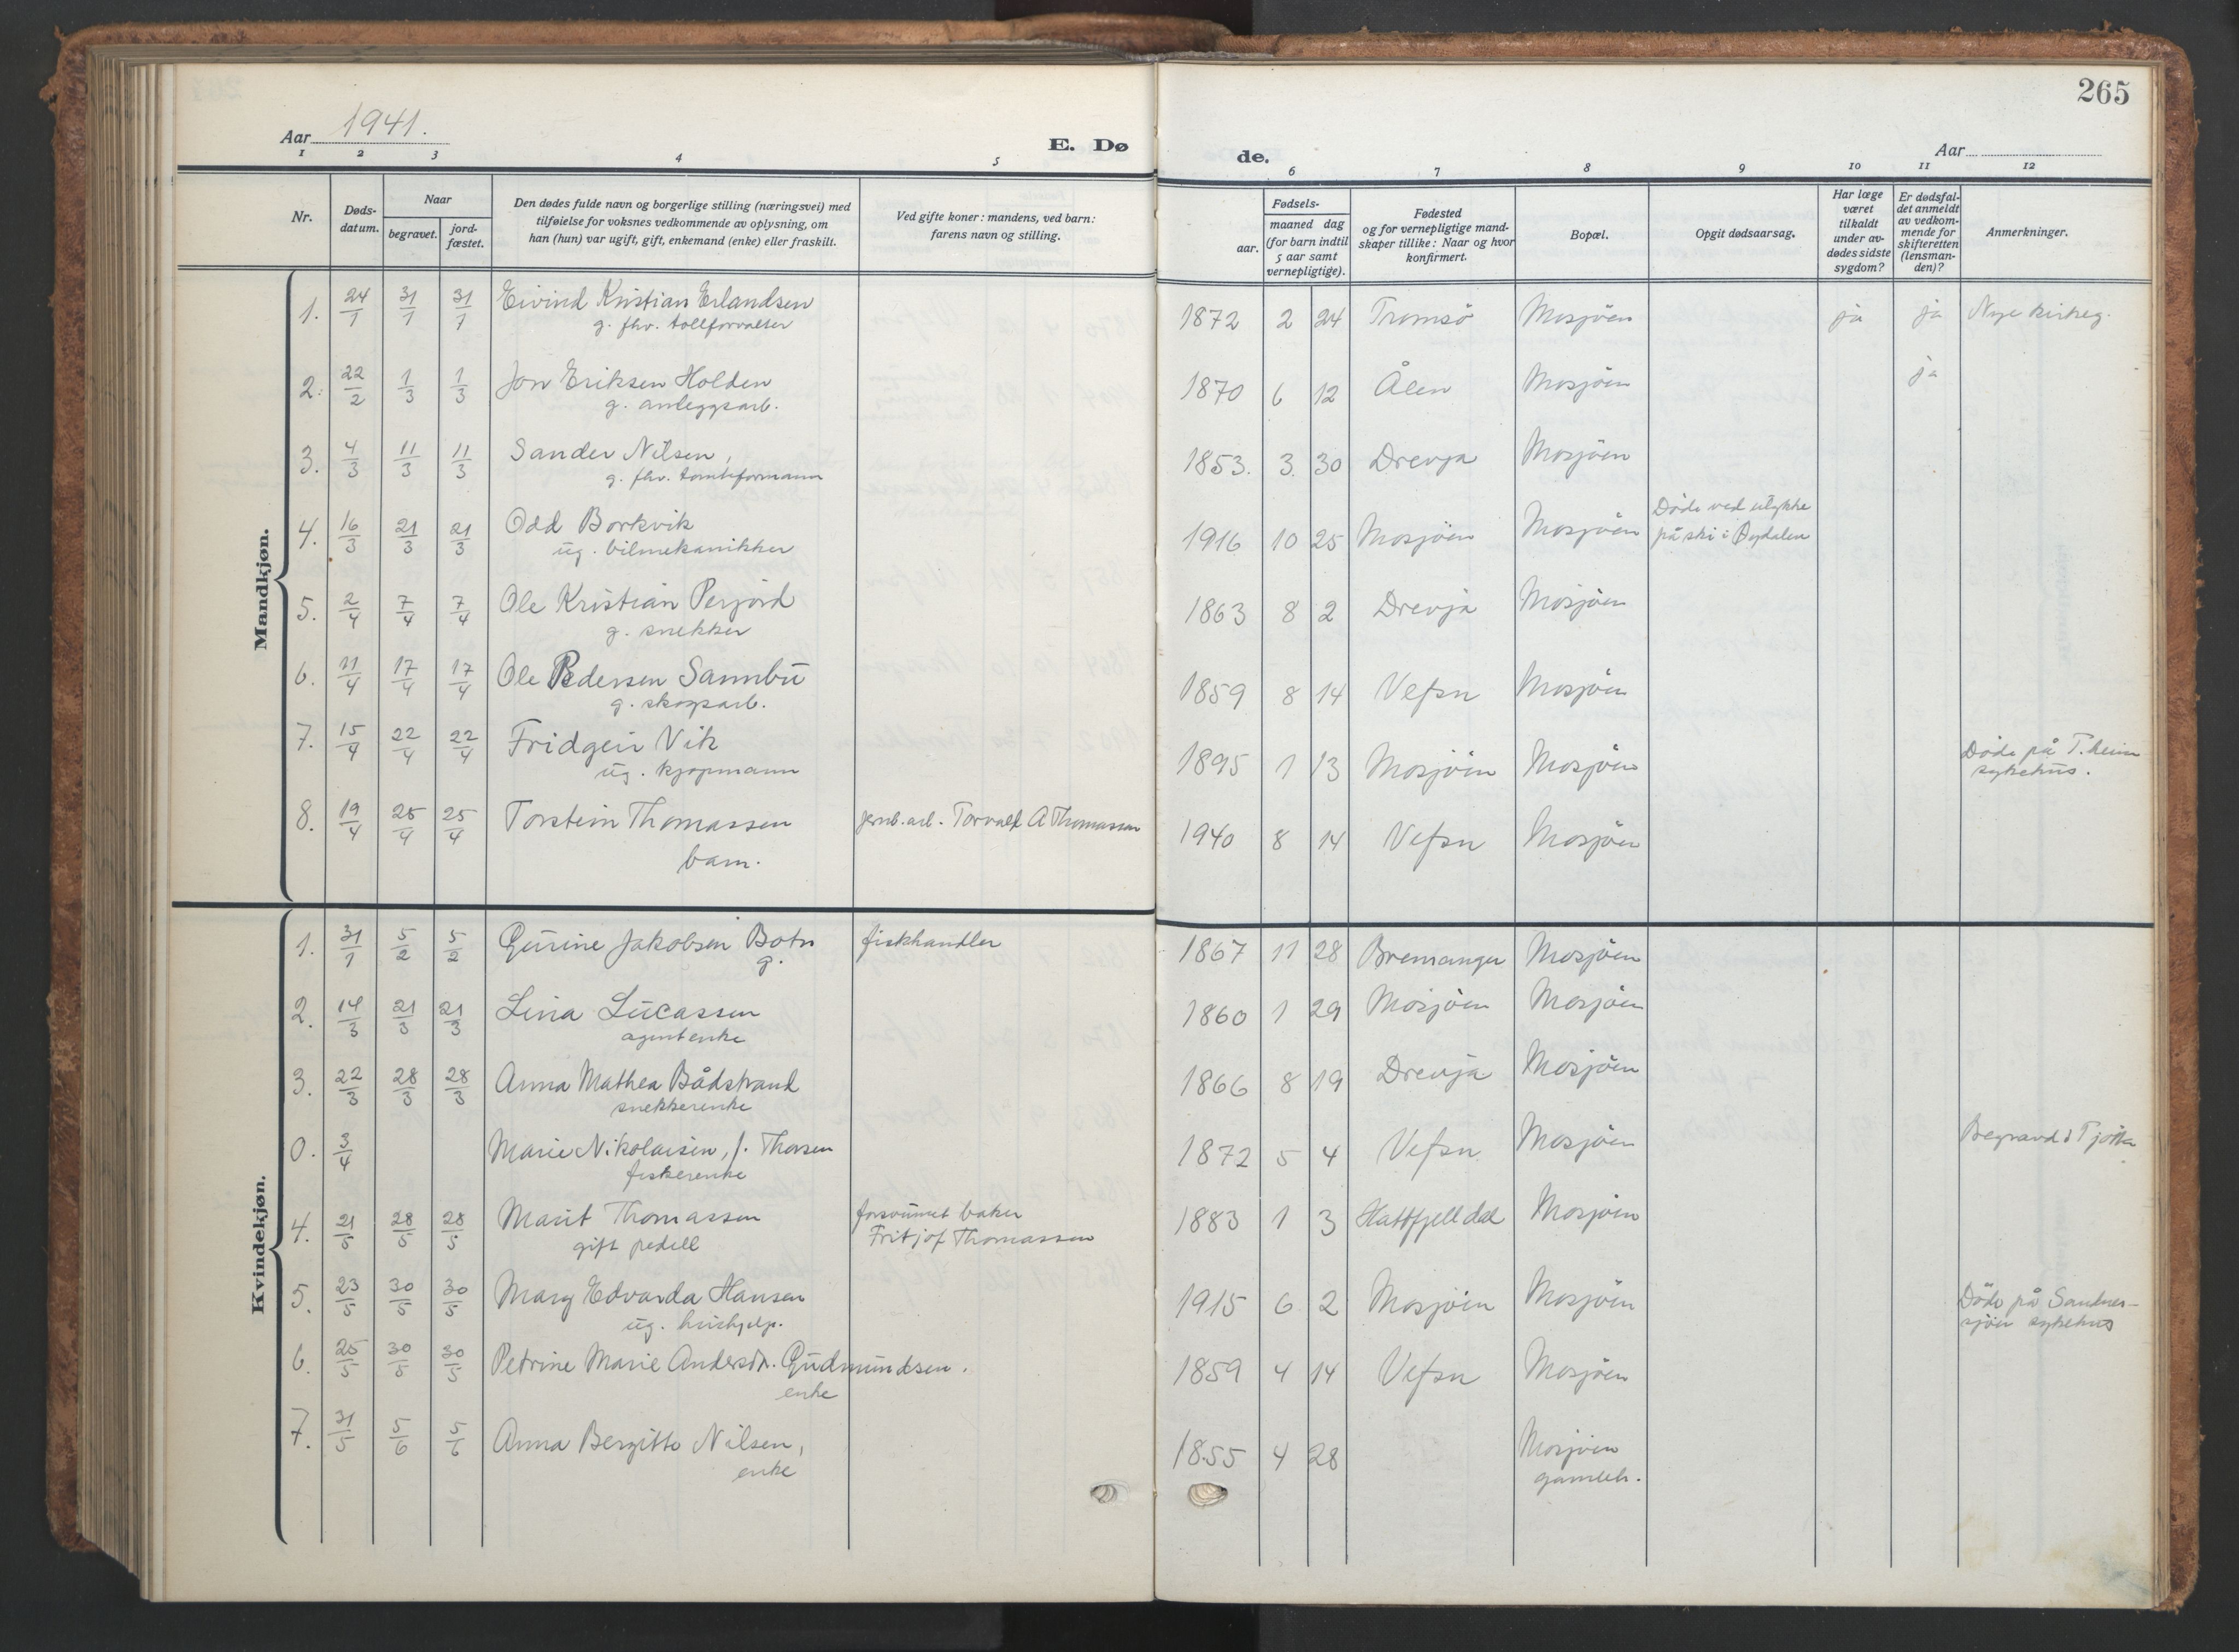 265
Aar 1941.
E. Dø
de.
Aar
1 2 3 4 5 6 7 8 9 10 11 12
Nr.
Døds-
datum.
Naar
begravet.
jord-
fæstet.
Den dødes fulde navn og borgerlige stilling (næringsvei) med
tilføielse for voksnes vedkommende av oplysning, om
han (hun) var ugift, gift, enkemand (enke) eller fraskilt.
Ved gifte koner: mandens, ved barn:
farens navn og stilling.
Fødsels-
aar.
maaned dag
(for barn indtil
5 aar samt
vernepligtige).
Fødested
og for vernepligtige mand-
skaper tillike: Naar og hvor
konfirmert.
Bopæl.
Opgit dødsaarsag.
Har læge
været
tilkaldt
under av-
dødes sidste
sygdom?
Er dødsfal-
det anmeldt
av vedkom-
mende for
skifteretten
(lensman-
den)?
Anmerkninger.
Mandkjøn.
1. 24/1 31/1 31/1 Eivind Kristian Erlandsen 1872 2 24 Tromsö Mosjöen ja ja Nye kirkeg.
g. fhv. tollforvalter
2. 22/2 1/3 1/3 Jon Eriksen Holden 1870 6 12 Ålen Mosjöen ja
g. anleggsarb.
3. 4/3 11/3 11/3 Sander Nilsen, 1853. 3. 30 Drevja Mosjöen
g. fhv. tomteformann
4. 16/3 21/3 21/3 Odd Borkvik 1916 10 25 Mosjöen Mosjöen Döde ved ulykke
ug. bilmekanikker på ski i Öydalen
5. 2/4 7/4 7/4 Ole Kristian Perjord 1863 8 2 Drevja Mosjöen
g. snekker
6. 11/4 17/4 17/4 Ole Pedersen Sannbu 1859 8 14 Vefsn Mosjöen
g. skogsarb.
7. 15/4 22/4 22/4 Fridgeir Vik 1895 1 13 Mosjöen Mosjöen Döde på T.heim
ug. kjøpmann sykehus.
8. 19/4 25/4 25/4 Torstein Thomassen jernb.arb. Torvald A Thomassen 1940 8 14 Vefsn Mosjöen
barn.
Kvindekjøn.
1. 31/1 5/2 5/2 Gurine Jakobsen Botn fiskhandler 1867 11 28 Bremanger Mosjöen
g.
2. 14/3 21/3 21/3 Lina Lucassen 1860 1 29 Mosjöen Mosjöen
agentenke
3. 22/3 28/3 28/3 Anna Mathea Bådstrand 1866 8 19 Drevja Mosjöen
snekkerenke
0. 3/4 Marie Nikolaisen, f. Thorsen 1872 5 4 Vefsn Mosjöen Begravd i Tjötta
fiskerenke
4. 21/5 28/5 28/5 Marit Thomassen forsvunnet baker 1883 1 3 Hattfjelldal Mosjöen
gift pedell Fritjof Thomassen
5. 23/5 30/5 30/5 Mary Edvarda Hansen 1915 6 2 Mosjöen Mosjöen Döde på Sandnes-
ug. hushjelp. sjöen sykehus
6. 25/5 30/5 30/5 Petrine Marie Andersdr. Gudmundsen. 1859 4 14 Vefsn Mosjöen
enke
7. 31/5 5/6 5/6 Anna Bergitte Nilsen, 1855 4 28 Mosjöen
enke gamleh.